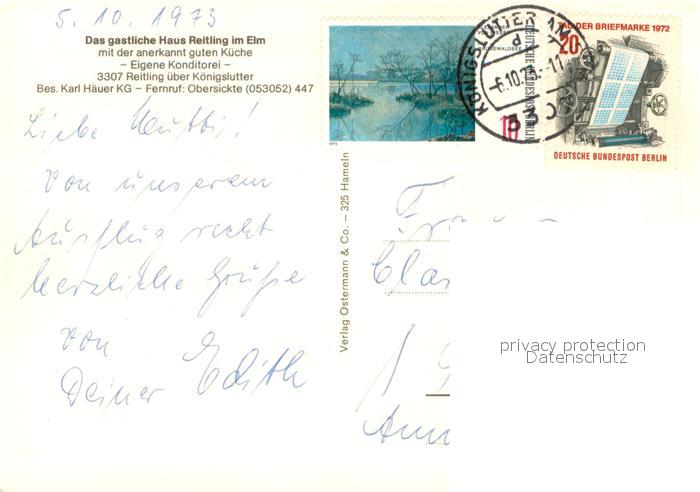 5. 10. 1973
Das gastliche Haus Reitling im Elm
mit der anerkannt guten Küche
– Eigene Konditorei –
3307 Reitling über Königslutter
Bes. Karl Häuer KG – Fernruf: Obersickte (053052) 447
Liebe Mutti!
Von unserem
Ausflug recht
herzliche Grüße
von
Deiner Edith
Verlag Ostermann & Co. – 325 Hameln
1972
10
DEUTSCHE BUNDESPOST BERLIN
KÖNIGSLUTTER AM
-6.10.
33
TAG DER BRIEFMARKE 1972
20
DEUTSCHE BUNDESPOST BERLIN
privacy protection
Datenschutz